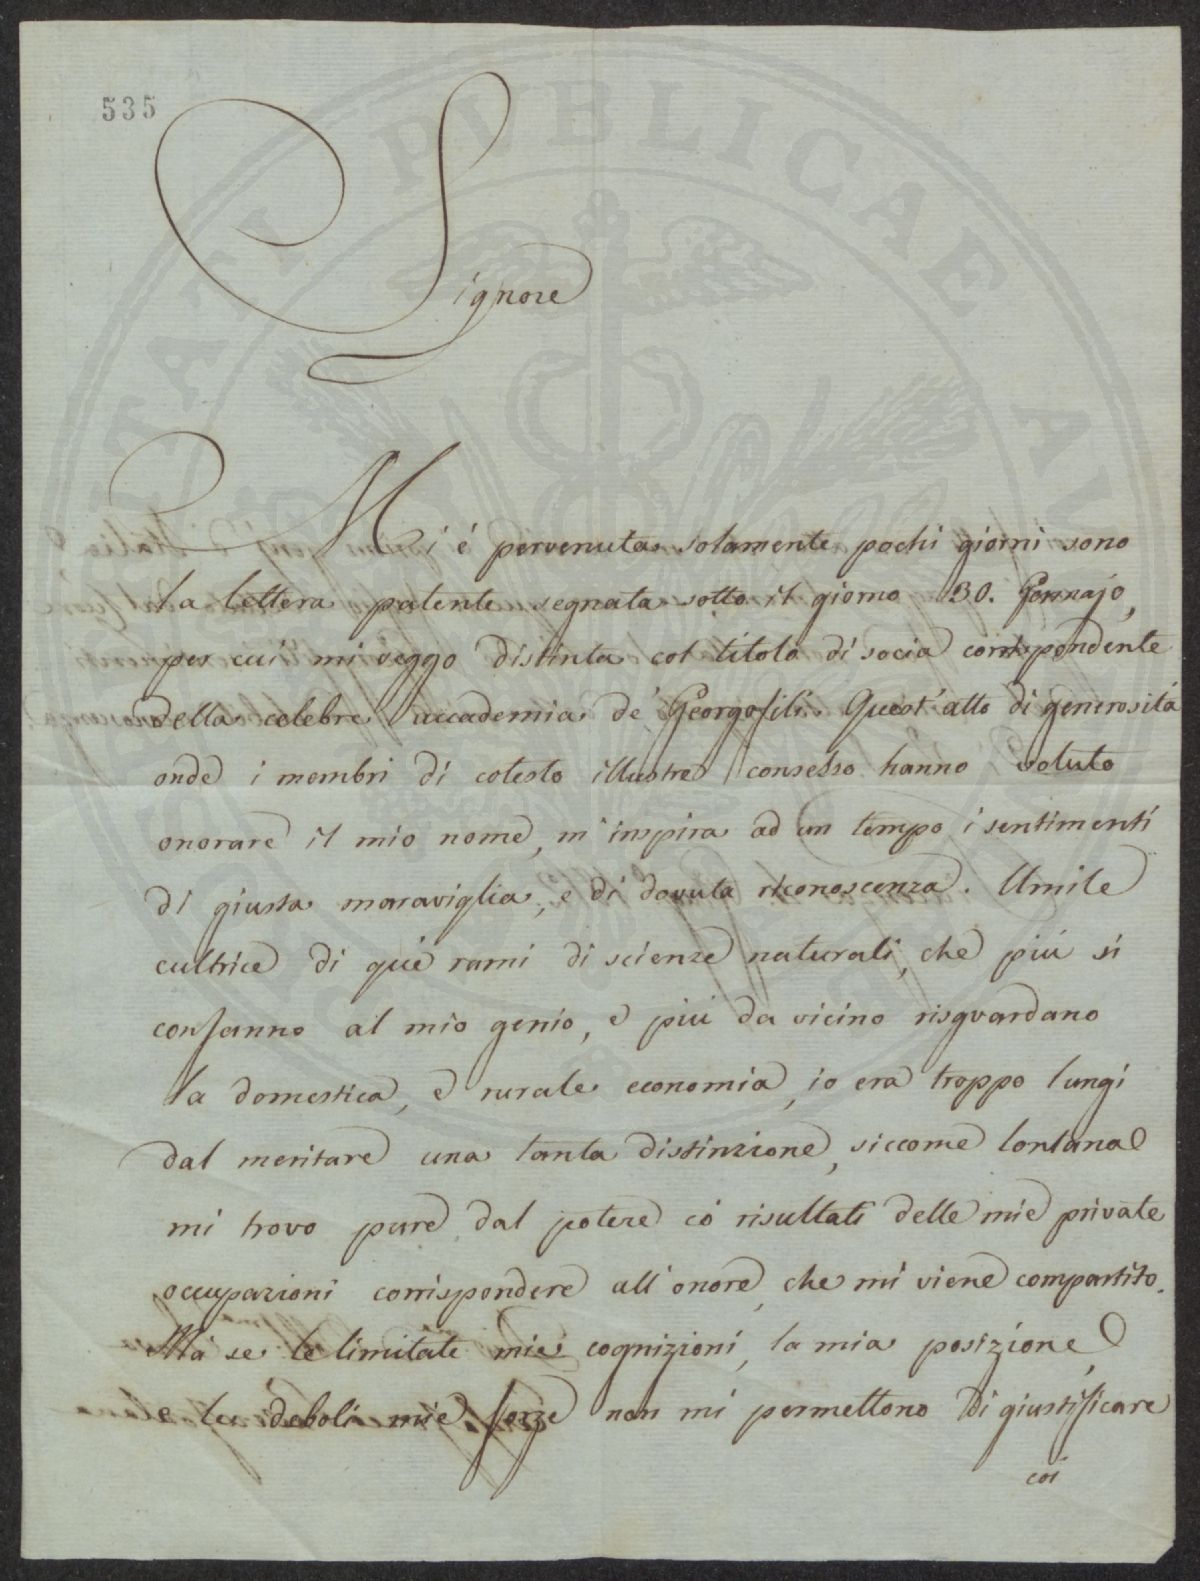 535
PUBLICAE
Signore
Mi é pervenuta solamente pochi giorni sono
la lettera patente segnata sotto il giorno 30. Gennajo,
per cui mi veggo distinta col titolo di socia corrispondente
della celebre accademia de' Georgofili. Quest' atto di generosità
onde i membri di cotesto illustre consesso hanno voluto
onorare il mio nome, m' inspira ad un tempo i sentimenti
di giusta maraviglia, e di dovuta riconoscenza. Umile
cultrice di que' rami di scienze naturali, che piú si
confanno al mio genio, e piú da vicino risguardano
la domestica, e rurale economia, io era troppo lungi
dal meritare una tanta distinzione, siccome lontana
mi trovo pure dal potere có risultati delle mie private
occupazioni corrispondere all' onore, che mi viene compartito.
Má se le limitate mie cognizioni, la mia posizione,
e le deboli mie forze non mi permettono di giustificare
coi